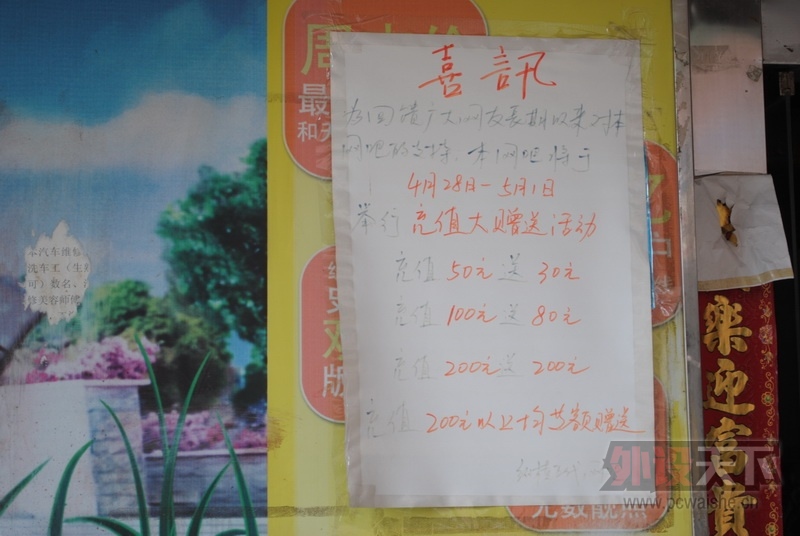 喜訊
为回馈广大网友长期以来对本
网吧的支持.本网吧将于
4月28日-5月1日
举行 充值大赠送活动
充值 50元 送 30元
充值 100元 送 80元
充值 200元 送 200元
充值 200元以上均等额赠送
最
和
版
车汽车维修
洗车工（生
可）数名，
修美容师傅
樂迎富貴
外设天下
www.pcwaishe.cn